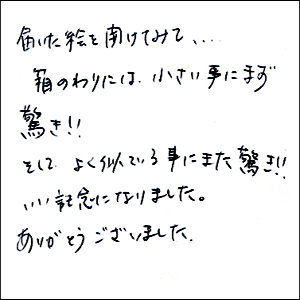 届いた絵を開けてみて、、、、
箱のわりには、小さい事にまず
驚き!!
そして、よく似ている事にまた驚き!!
いい記念になりました。
ありがとうございました.